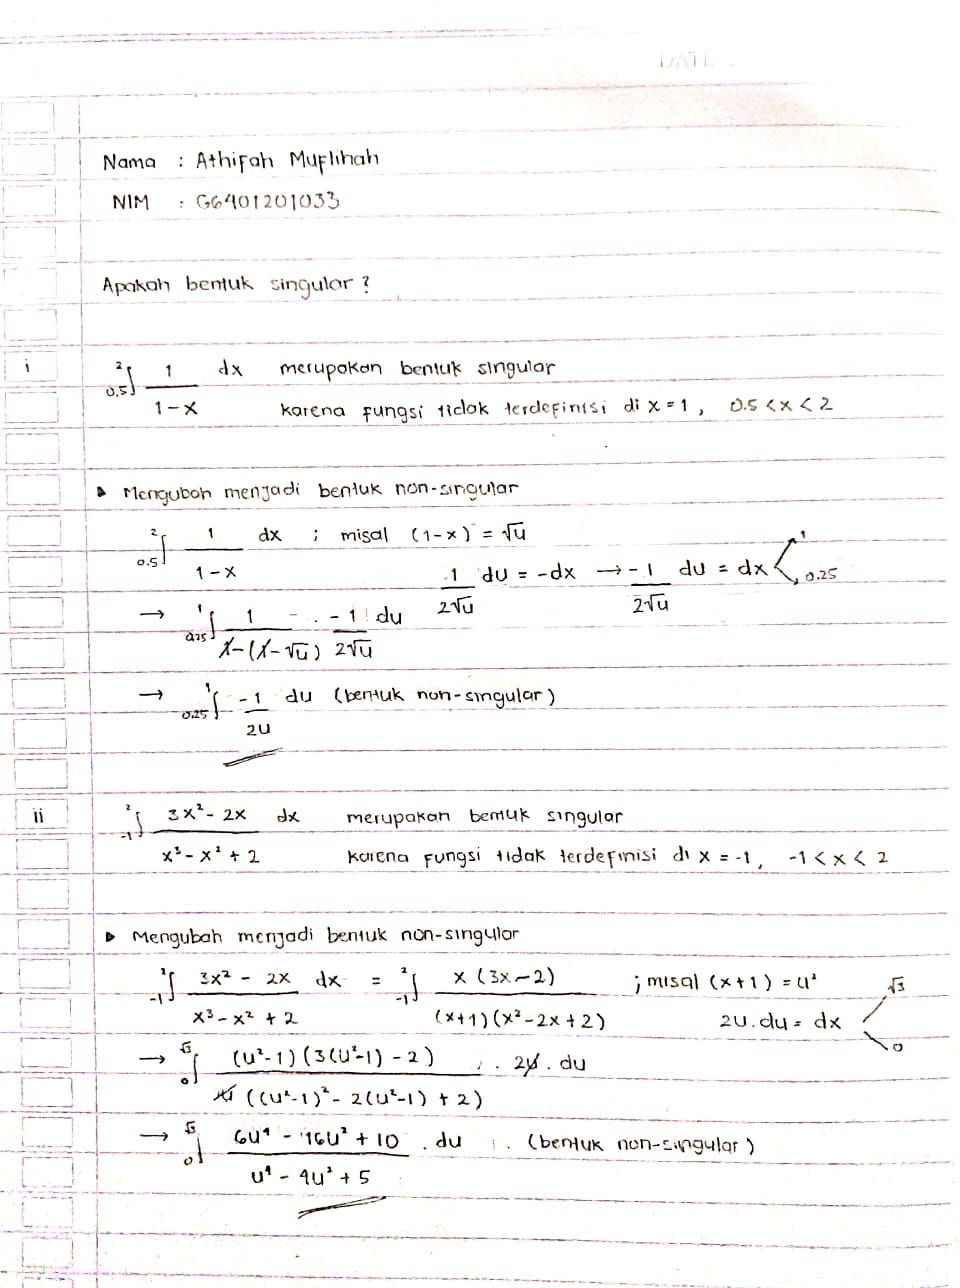 DATE :
Nama : Athifah Muflihah
NIM : G6401201033
Apakah bentuk singular ?
i ₀.₅∫² 1/(1-x) dx merupakan bentuk singular
karena fungsi tidak terdefinisi di x = 1, 0.5 < x < 2
▸ Mengubah menjadi bentuk non-singular
₀.₅∫² 1/(1-x) dx ; misal (1-x) = √u
1/(2√u) du = -dx → -1/(2√u) du = dx < 1, 0.25
→ ₀.₂₅∫¹ 1/(1-(1-√u)) . -1/(2√u) du
→ ₀.₂₅∫¹ -1/(2u) du (bentuk non-singular)
ii ₋₁∫² (3x²- 2x)/(x³- x² + 2) dx merupakan bentuk singular
karena fungsi tidak terdefinisi di x = -1, -1 < x < 2
▸ Mengubah menjadi bentuk non-singular
₋₁∫² (3x² - 2x)/(x³- x² + 2) dx = ₋₁∫² x (3x-2)/((x+1)(x²-2x+2)) ; misal (x+1) = u²
2u.du = dx < √3, 0
→ ₀∫^√3 (u²-1)(3(u²-1) - 2)/(u² ((u²-1)²- 2(u²-1) + 2)) . 2u . du
→ ₀∫^√3 (6u⁴ - 16u² + 10)/(u⁴ - 4u² + 5) . du (bentuk non-singular)